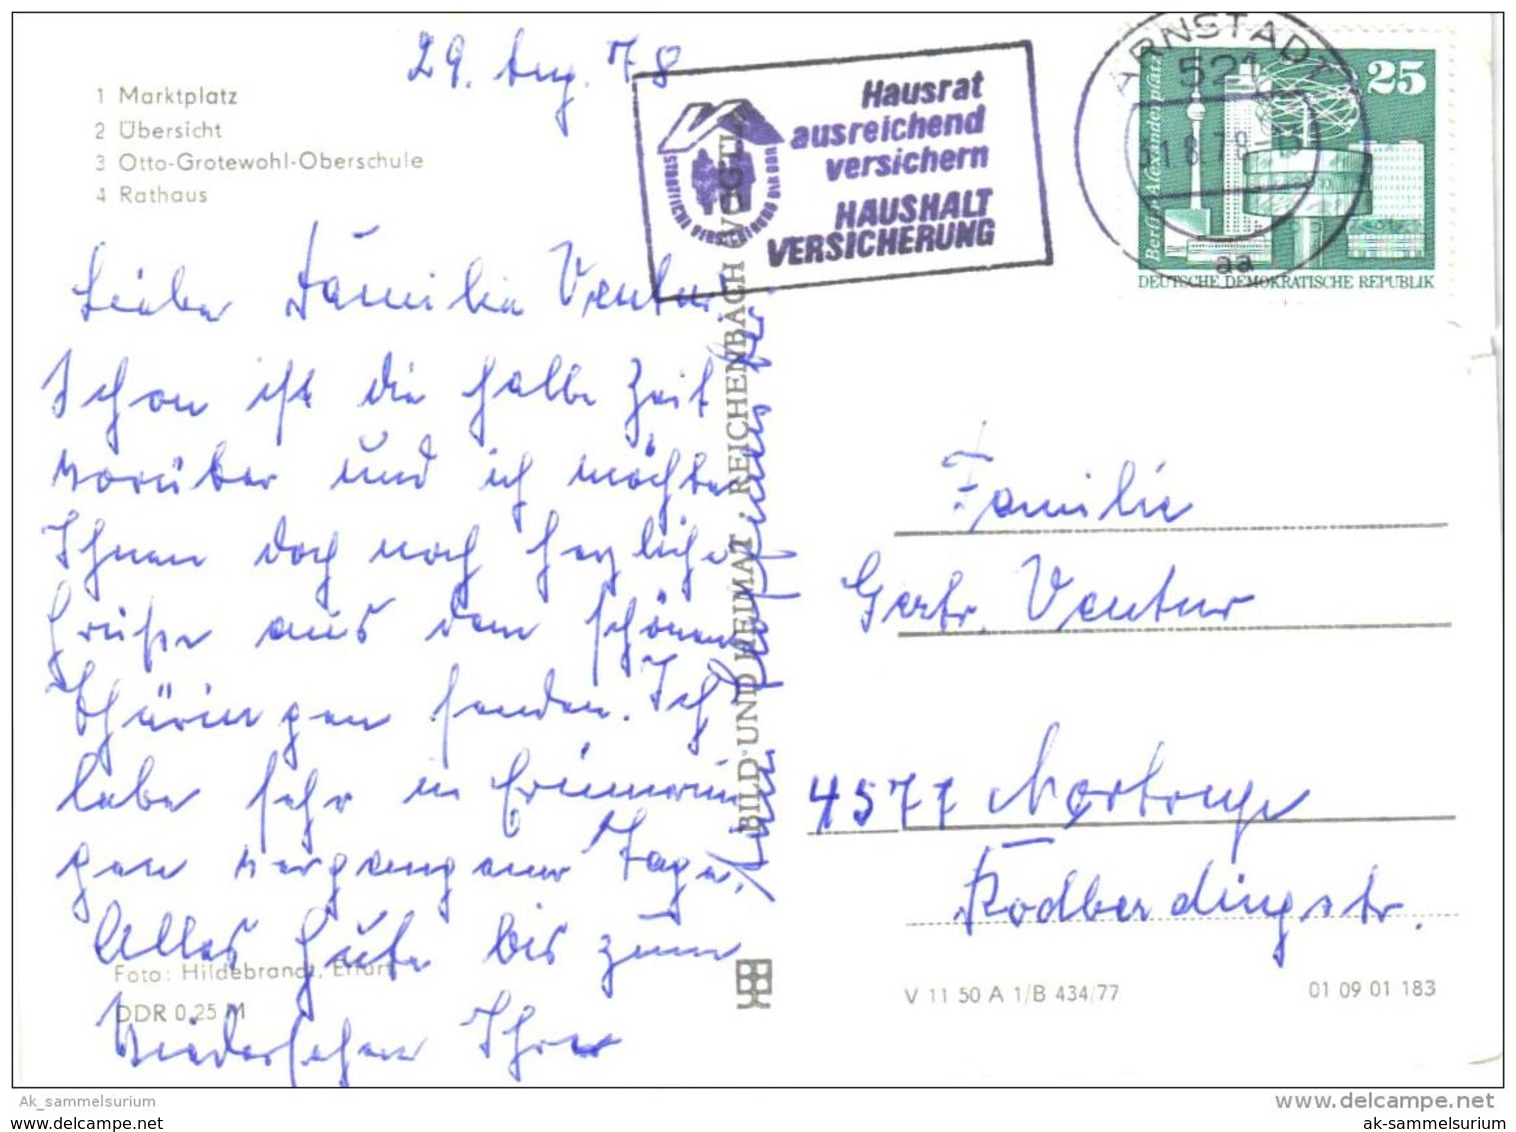 29. Aug. 78
1 Marktplatz
2 Übersicht
3 Otto-Grotewohl-Oberschule
4 Rathaus
Hausrat
ausreichend
versichern
HAUSHALT
VERSICHERUNG
STAATLICHE VERSICHERUNG DER DDR
ARNSTADT
521
aa
25
Berlin-Alexanderplatz
DEUTSCHE DEMOKRATISCHE REPUBLIK
Liebe Familie Ventur.
Schon ist die halbe Zeit
vorüber und ich möchte
Ihnen doch noch herzliche
Grüße aus dem schönen
Thüringen senden. Ich
lebe sehr in Erinnerun
gen vergangener Tage.
Alles Gute bis zum
Wiedersehen Ihre
BILD UND HEIMAT · REICHENBACH (VOGTL
Familie
Gerh. Ventur
4577
Rodberdingstr.
Foto: Hildebrandt, Erfurt
DDR 0,25 M
V 11 50 A 1/B 434/77
01 09 01 183
Ak_sammelsurium
www.delcampe.net
www.delcampe.net
ak-sammelsurium